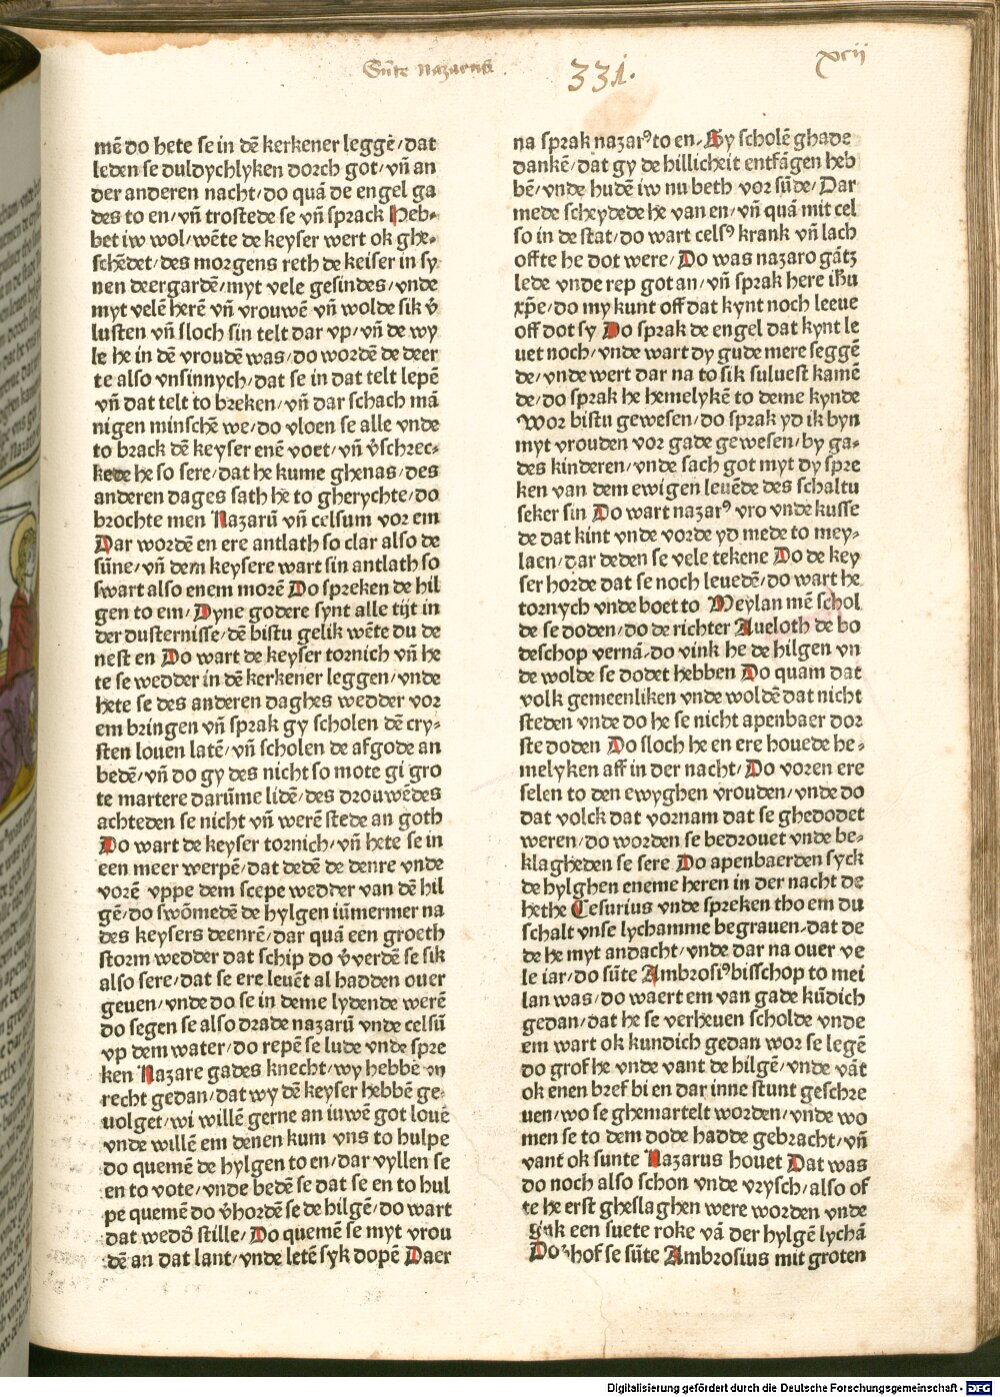 Sūte Nazarus
331.
xcii
mē do hete se in dē kerkener leggē/dat
leden se duldychlyken dorch got/vñ an
der anderen nacht/do quā de engel ga
des to en/vñ trostede se vñ sprack Heb-
bet iw wol/wēte de keyser wert ok ghe-
schēdet/des morgens reth de keiser in sy
nen deergardē/myt vele gesindes/vnde
myt velē herē vñ vrouwē vñ wolde sik v̄
lusten vñ sloch sin telt dar vp/vñ de wy
le he in dē vroudē was/do wordē de deer
te also vnsinnych/dat se in dat telt lepē
vñ dat telt to breken/vñ dar schach mā
nigen minschē we/do vloen se alle vnde
to brack dē keyser enē voet/vñ v̄schrec-
kede he so sere/dat he kume ghenas/des
anderen dages sath he to gherychte/do
brochte men Nazarū vñ celsum vor em
Dar wordē en ere antlath so clar also de
sūne/vñ dem keysere wart sin antlath so
swart also enem morē Do spreken de hil
gen to em/Dyne godere synt alle tijt in
der dusternisse/dē bistu gelik wēte du de
nest en Do wart de keyser tornich vñ he
te se wedder in dē kerkener leggen/vnde
hete se des anderen daghes wedder vor
em bringen vñ sprak gy scholen dē cry-
sten louen latē/vñ scholen de afgode an
bedē/vñ do gy des nicht so mote gi gro
te martere darūme lidē/des drouwēdes
achteden se nicht vñ werē stede an goth
Do wart de keyser tornich/vñ hete se in
een meer werpē/dat dedē de denre vnde
vorē vppe dem scepe wedder van dē hil
gē/do swōmedē de hylgen iūmermer na
des keysers deenrē/dar quā een groeth
storm wedder dat schip do v̄verdē se sik
also sere/dat se ere leuēt al hadden ouer
geuen/vnde do se in deme lydende werē
do segen se also drade nazarū vnde celsū
vp dem water/do repē se lude vnde spre
ken Nazare gades knecht/wy hebbē vn
recht gedan/dat wy dē keyser hebbē ge-
uolget/wi willē gerne an iuwē got louē
vnde willē em denen kum vns to hulpe
do quemē de hylgen to en/dar vyllen se
en to vote/vnde bedē se dat se en to hul
pe quemē do v̄hordē se de hilgē/do wart
dat wedd̄ stille/Do quemē se myt vrou
dē an dat lant/vnde letē syk dopē Daer
na sprak nazarꝰ to en-Gy scholē ghade
dankē/dat gy de hillicheit entfāgen heb
bē/vnde hudē iw nu beth vor sūde/Dar
mede scheydede he van en/vñ quā mit cel
so in de stat/do wart celsꝰ krank vñ lach
offte he dot were/Do was nazaro gātz
lede vnde rep got an/vñ sprak here ihū
xp̄e/do my kunt off dat kynt noch leeue
off dot sy Do sprak de engel dat kynt le
uet noch/vnde wart dy gude mere seggē
de/vnde wert dar na to sik suluest kamē
de/do sprak he hemelykē to deme kynde
Wor bistu gewesen/do sprak yd ik byn
myt vrouden vor gade gewesen/by ga-
des kinderen/vnde sach got myt dy spre
ken van dem ewigen leuēde des schaltu
seker sin Do wart nazarꝰ vro vnde kusse
de dat kint vnde vorde yd mede to mey-
laen/dar deden se vele tekene Do de key
ser horde dat se noch leuedē/do wart he
tornych vnde boet to Meylan mē schol
de se doden/do de richter Aueloth de bo
deschop vernā/do vink he de hilgen vn
de wolde se dodet hebben Do quam dat
volk gemeenliken vnde woldē dat nicht
steden vnde do he se nicht apenbaer dor
ste doden Do sloch he en ere houede he-
melyken aff in der nacht/Do voren ere
selen to den ewyghen vrouden/vnde do
dat volck dat vornam dat se ghedodet
weren/do worden se bedrouet vnde be-
klagheden se sere Do apenbaerden syck
de hylghen eneme heren in der nacht de
hethe Cesurius vnde spreken tho em du
schalt vnse lychamme begrauen/dat de
de he myt andacht/vnde dar na ouer ve
le iar/do sūte Ambrosiꝰ bisschop to mei
lan was/do waert em van gade kūdich
gedan/dat he se verheuen scholde vnde
em wart ok kundich gedan wor se legē
do grof he vnde vant de hilgē/vnde vāt
ok enen bref bi en dar inne stunt geschre
uen/wo se ghemartelt worden/vnde wo
men se to dem dode hadde gebracht/vñ
vant ok sunte Nazarus houet Dat was
do noch also schon vnde vrysch/also of
te he erst gheslaghen were worden vnde
gak een suete roke vā der hylgē lychā
Do hof se sūte Ambrosius mit groten
Digitalisierung gefördert durch die Deutsche Forschungsgemeinschaft - DFG